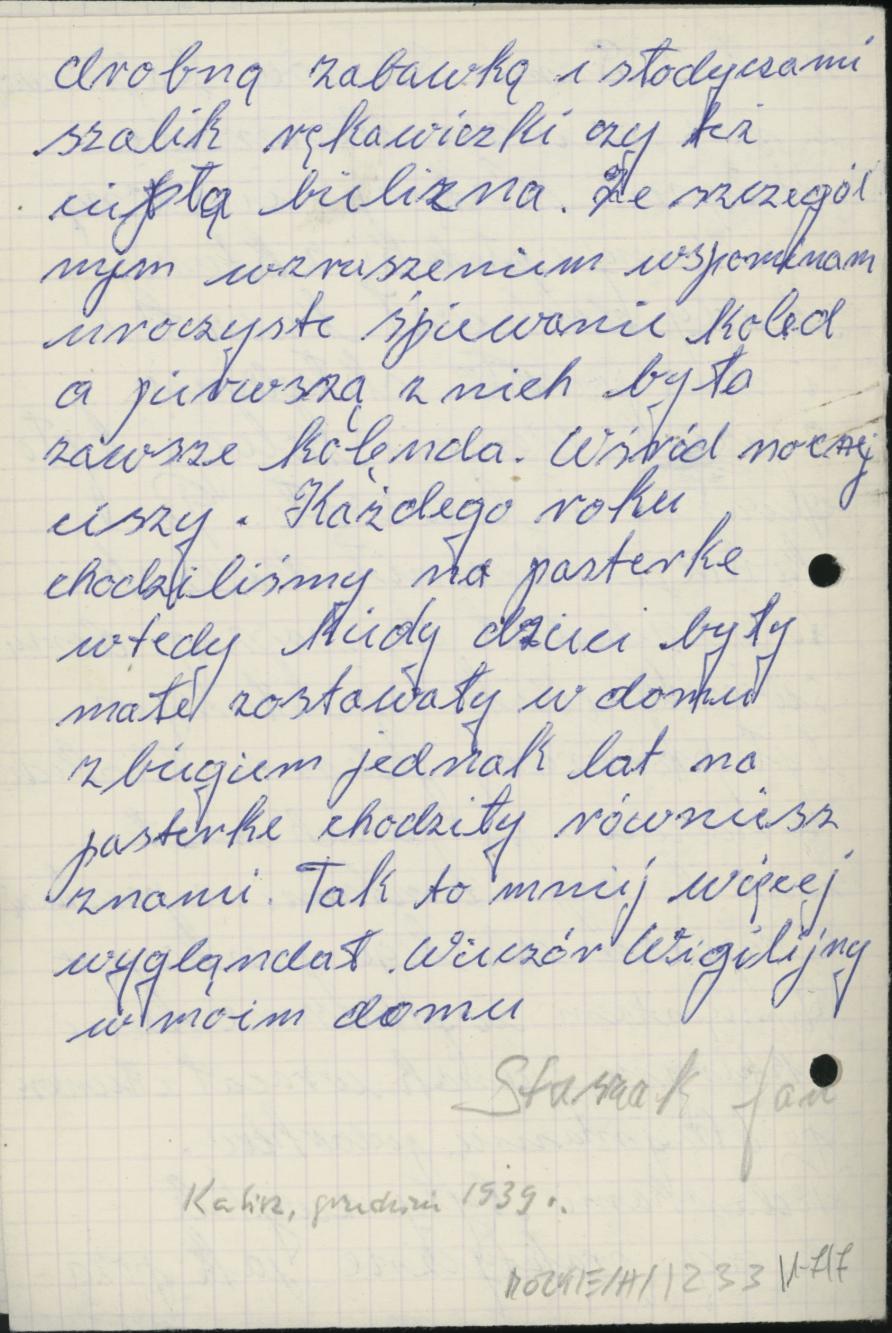 drobną zabawką i słodyczami
szalik rękawiczki czy też
ciepłą bielizna. Ze szczegól
nym wzruszeniem wspominam
uroczyste śpiewanie kolęd
a pierwszą z nich była
zawsze kolęnda. Wśród nocnej
ciszy. Każdego roku
chodziliśmy na pasterke
wtedy kiedy dzieci były
małe zostawały w domu
z biegiem jednak lat na
pasterke chodziły równiesz
znami. Tak to mniej więcej
wyglądndał. Wieczór Wigilijny
w moim domu
Jan
Kalisz, grudzień 1939.